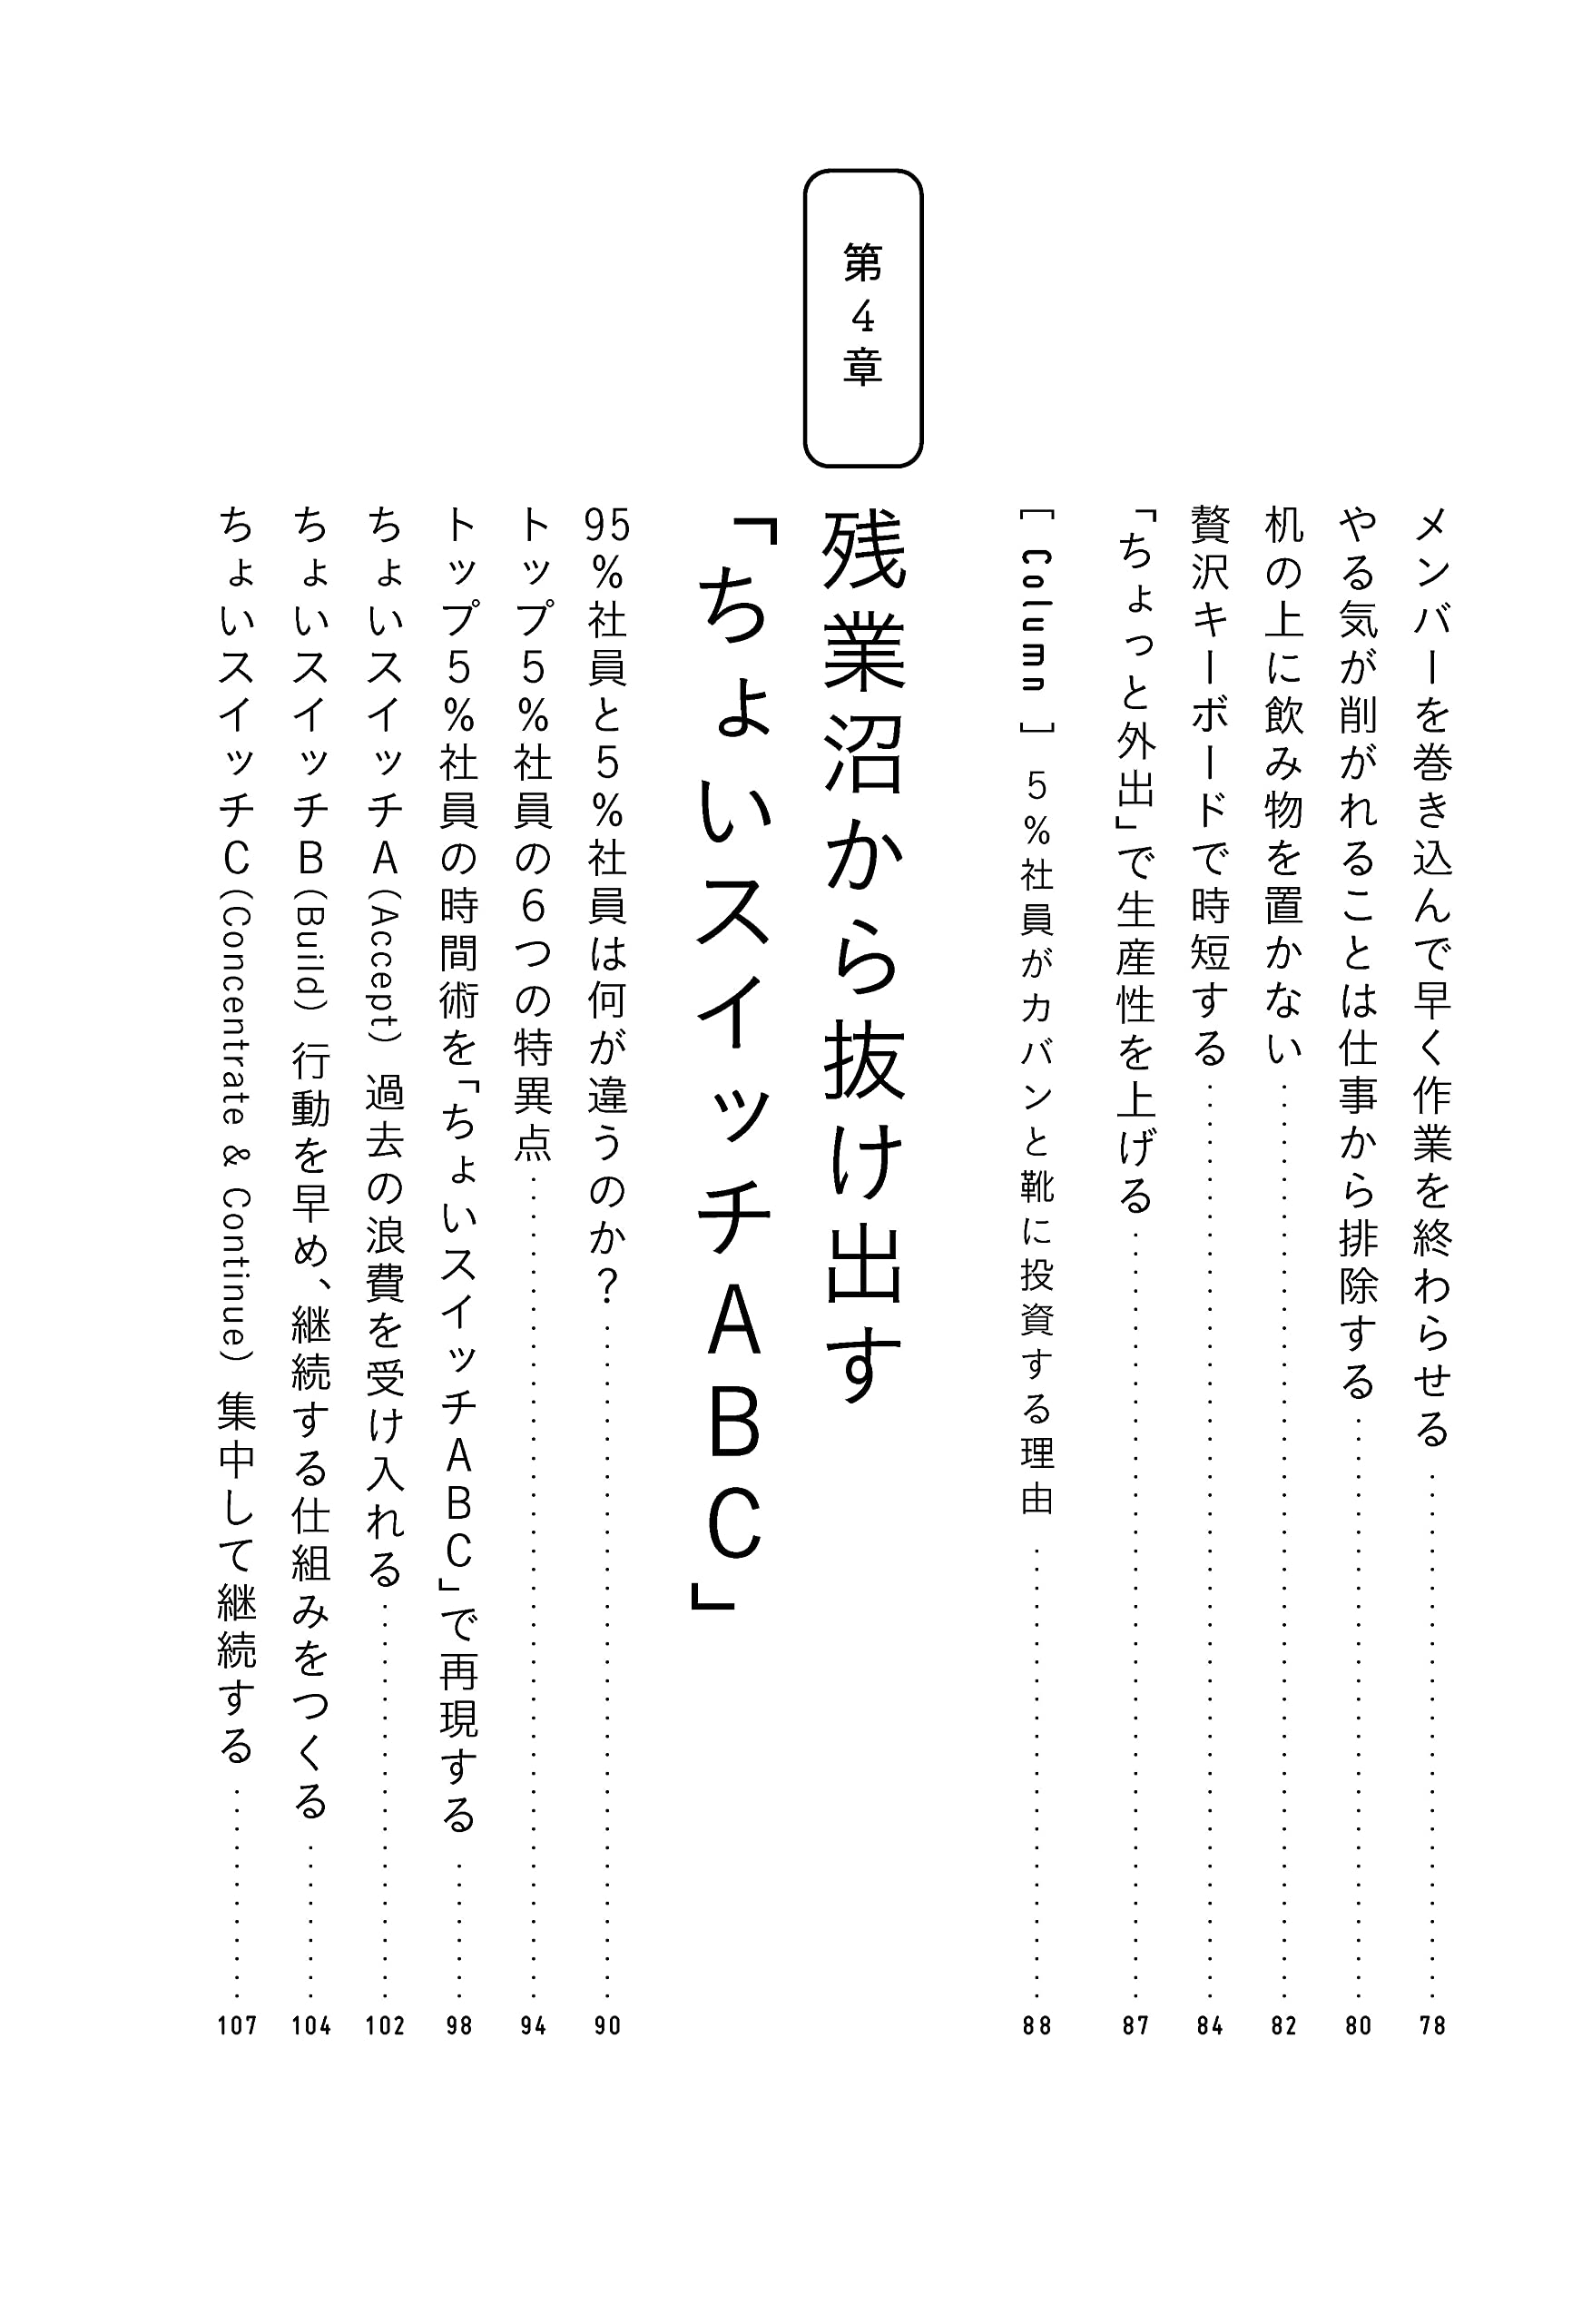 メンバーを巻き込んで早く作業を終わらせる……78
やる気が削がれることは仕事から排除する……80
机の上に飲み物を置かない……82
贅沢キーボードで時短する……84
「ちょっと外出」で生産性を上げる……87
［Column］5％社員がカバンと靴に投資する理由……88
第4章
残業沼から抜け出す
「ちょいスイッチABC」
95％社員と5％社員は何が違うのか？……90
トップ5％社員の6つの特異点……94
トップ5％社員の時間術を「ちょいスイッチABC」で再現する……98
ちょいスイッチA（Accept）過去の浪費を受け入れる……102
ちょいスイッチB（Build）行動を早め、継続する仕組みをつくる……104
ちょいスイッチC（Concentrate & Continue）集中して継続する……107